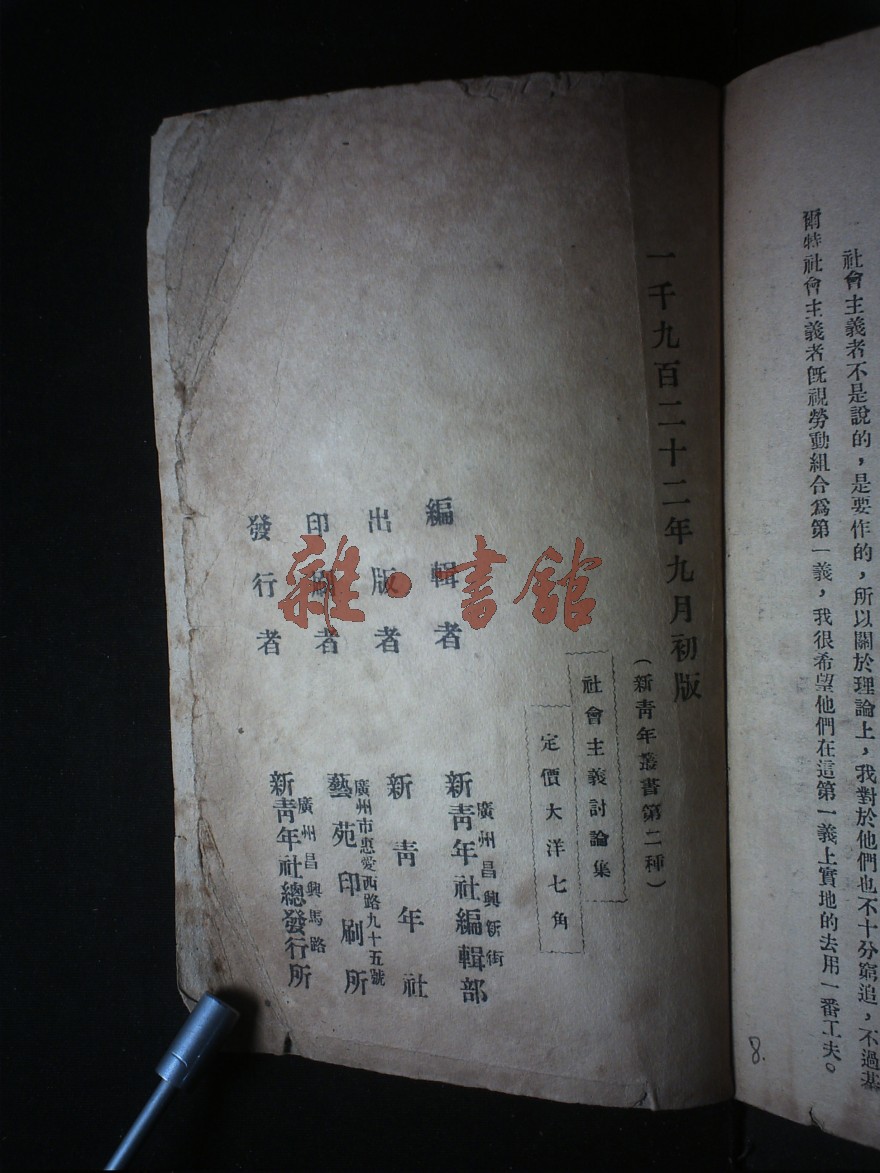 社會主義者不是說的，是要作的，所以關於理論上，我對於他們也不十分窮追，不過基
爾特社會主義者既視勞動組合爲第一義，我很希望他們在這第一義上實地的去用一番工夫。
8.
一千九百二十二年九月初版
（新靑年叢書第二種）
社會主義討論集
定價大洋七角
編輯者
廣州昌興新街
新靑年社編輯部
出版者
新靑年社
印刷者
廣州市惠愛西路九十五號
藝苑印刷所
發行者
廣州昌興馬路
新靑年社總發行所
雜·書館